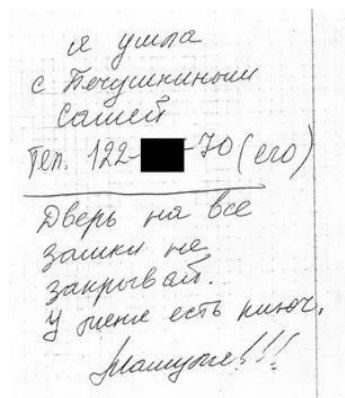 я ушла
с Печушкиным
Сашей
Тел. 122- -70 (его)
Дверь на все
замки не
закрывай.
У меня есть ключ.
Мамуле!!!